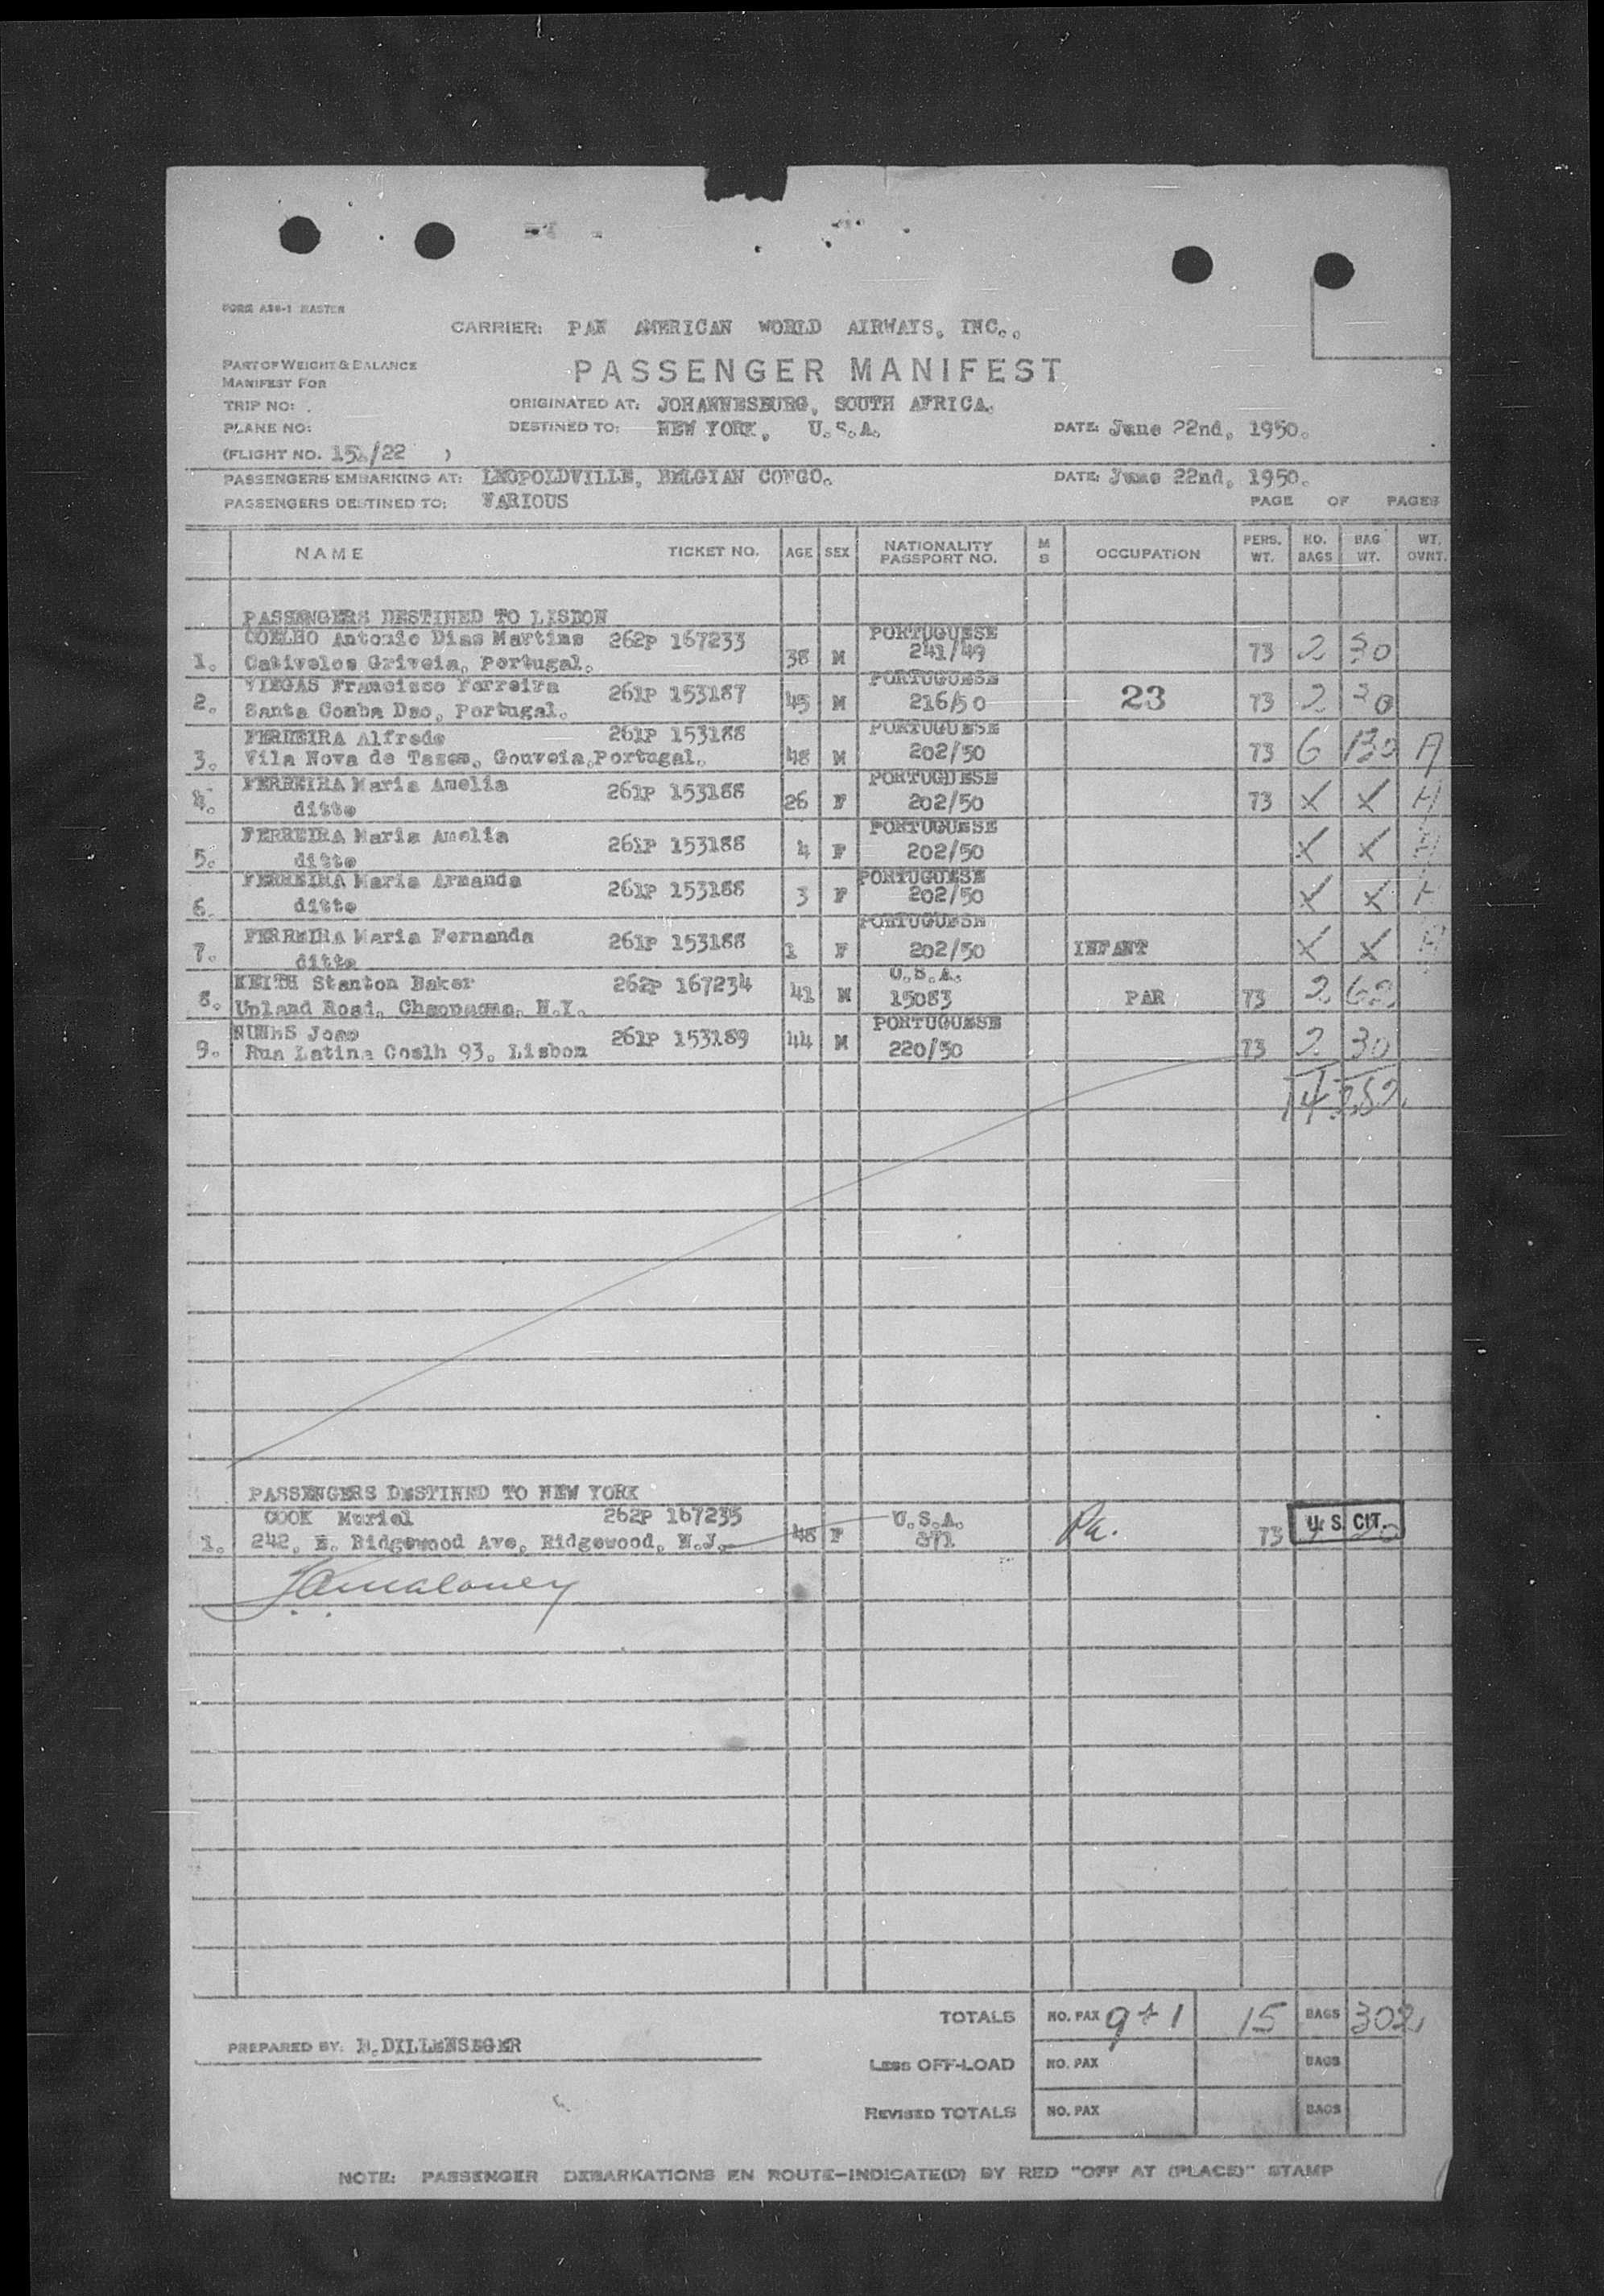 FORM A36-1 MASTER
CARRIER: PAN AMERICAN WORLD AIRWAYS, INC.,
PART OF WEIGHT & BALANCE
MANIFEST FOR
PASSENGER MANIFEST
TRIP NO:
ORIGINATED AT: JOHANNESBURG, SOUTH AFRICA.
PLANE NO:
DESTINED TO: NEW YORK, U.S.A. DATE: June 22nd, 1950.
(FLIGHT NO. /22 )
PASSENGERS EMBARKING AT: LEOPOLDVILLE, BELGIAN CONGO. DATE: June 22nd, 1950.
PASSENGERS DESTINED TO: VARIOUS PAGE OF PAGES
NAME TICKET NO. AGE SEX NATIONALITY PASSPORT NO. M S OCCUPATION PERS. WT. NO. BAGS BAG WT. WT. OVNT.
PASSENGERS DESTINED TO LISBON
COELHO Antonio Dias Martins 262P 167233 PORTUGUESE
1. Cativelos Griveia, Portugal. 38 M 241/49 73 2 30
VIEGAS Francisco Ferreira 261P 153187 PORTUGUESE
2. Santa Comba Dao, Portugal. 45 M 216/50 23 73 2 30
FERREIRA Alfredo 261P 153188 PORTUGUESE
3. Vila Nova de Tazem, Gouveia, Portugal. 48 M 202/50 73 6 130 A
FERREIRA Maria Amelia 261P 153188 PORTUGUESE
4. ditto 26 F 202/50 73 X X
FERREIRA Maria Amelia 261P 153188 PORTUGUESE
5. ditto 4 F 202/50 X X
FERREIRA Maria Armanda 261P 153188 PORTUGUESE
6. ditto 3 F 202/50 X X
FERREIRA Maria Fernanda 261P 153188 PORTUGUESE
7. ditto 1 F 202/50 INFANT X X
KEITH Stanton Baker 262P 167234 U.S.A.
8. Upland Road, N.Y. 41 M 15083 PAR 73 2 62
NUNES Joao 261P 153189 PORTUGUESE
9. Rua Latina Coelh 93, Lisbon 44 M 220/50 73 2 30
14 282
PASSENGERS DESTINED TO NEW YORK
COOK Muriel 262P 167235 U.S.A.
1. 242, E. Ridgewood Ave, Ridgewood, N.J. 48 F 371 73 U. S. CIT.
TOTALS NO. PAX 9+1 15 BAGS 302
PREPARED BY: DILLENSEGER
LESS OFF-LOAD NO. PAX BAGS
REVISED TOTALS NO. PAX BAGS
NOTE: PASSENGER DEBARKATIONS EN ROUTE-INDICATE(D) BY RED "OFF AT (PLACE)" STAMP